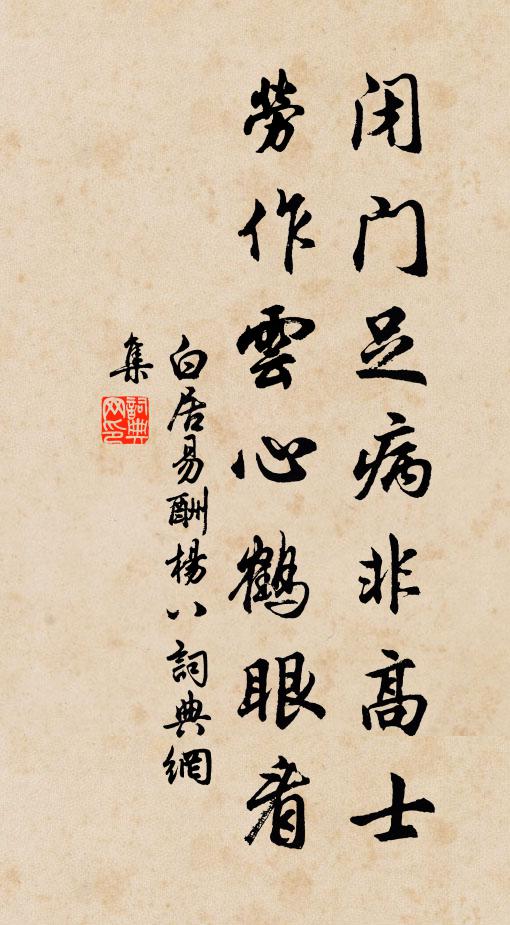 闭门足病非高士
劳作雲心鹤眼看
白居易酬杨八詞典網
集
詞典网印